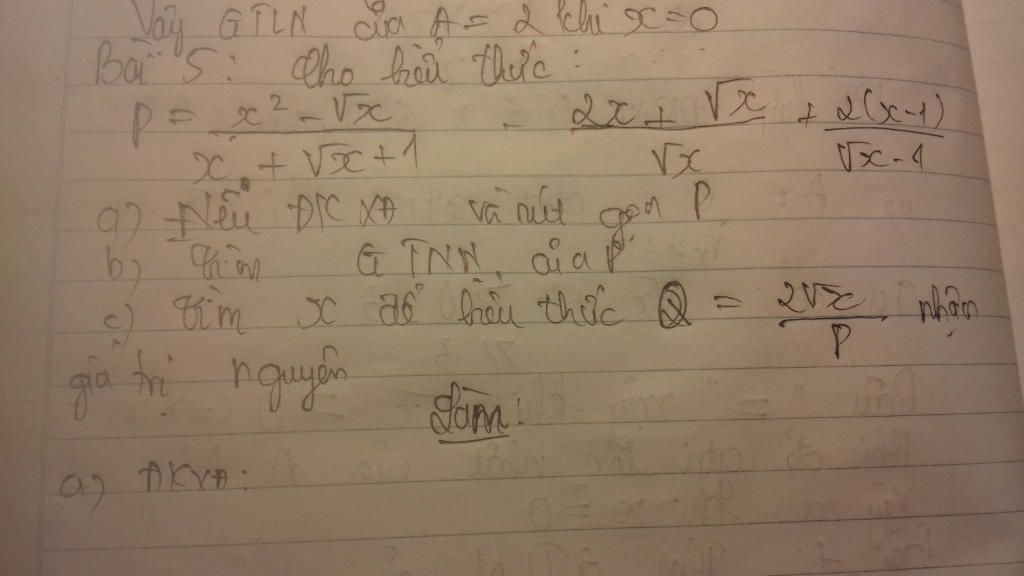 Vậy GTLN của A = 2 khi x = 0
Bài 5: Cho biểu thức:
P = \frac{x^2 - \sqrt{x}}{x + \sqrt{x} + 1} - \frac{2x + \sqrt{x}}{\sqrt{x}} + \frac{2(x-1)}{\sqrt{x} - 1}
a) Nêu ĐKXĐ và rút gọn P
b) Tìm GTNN của P
c) tìm x để biểu thức Q = \frac{2\sqrt{x}}{P} nhận
giá trị nguyên
Làm:
a) ĐKXĐ: